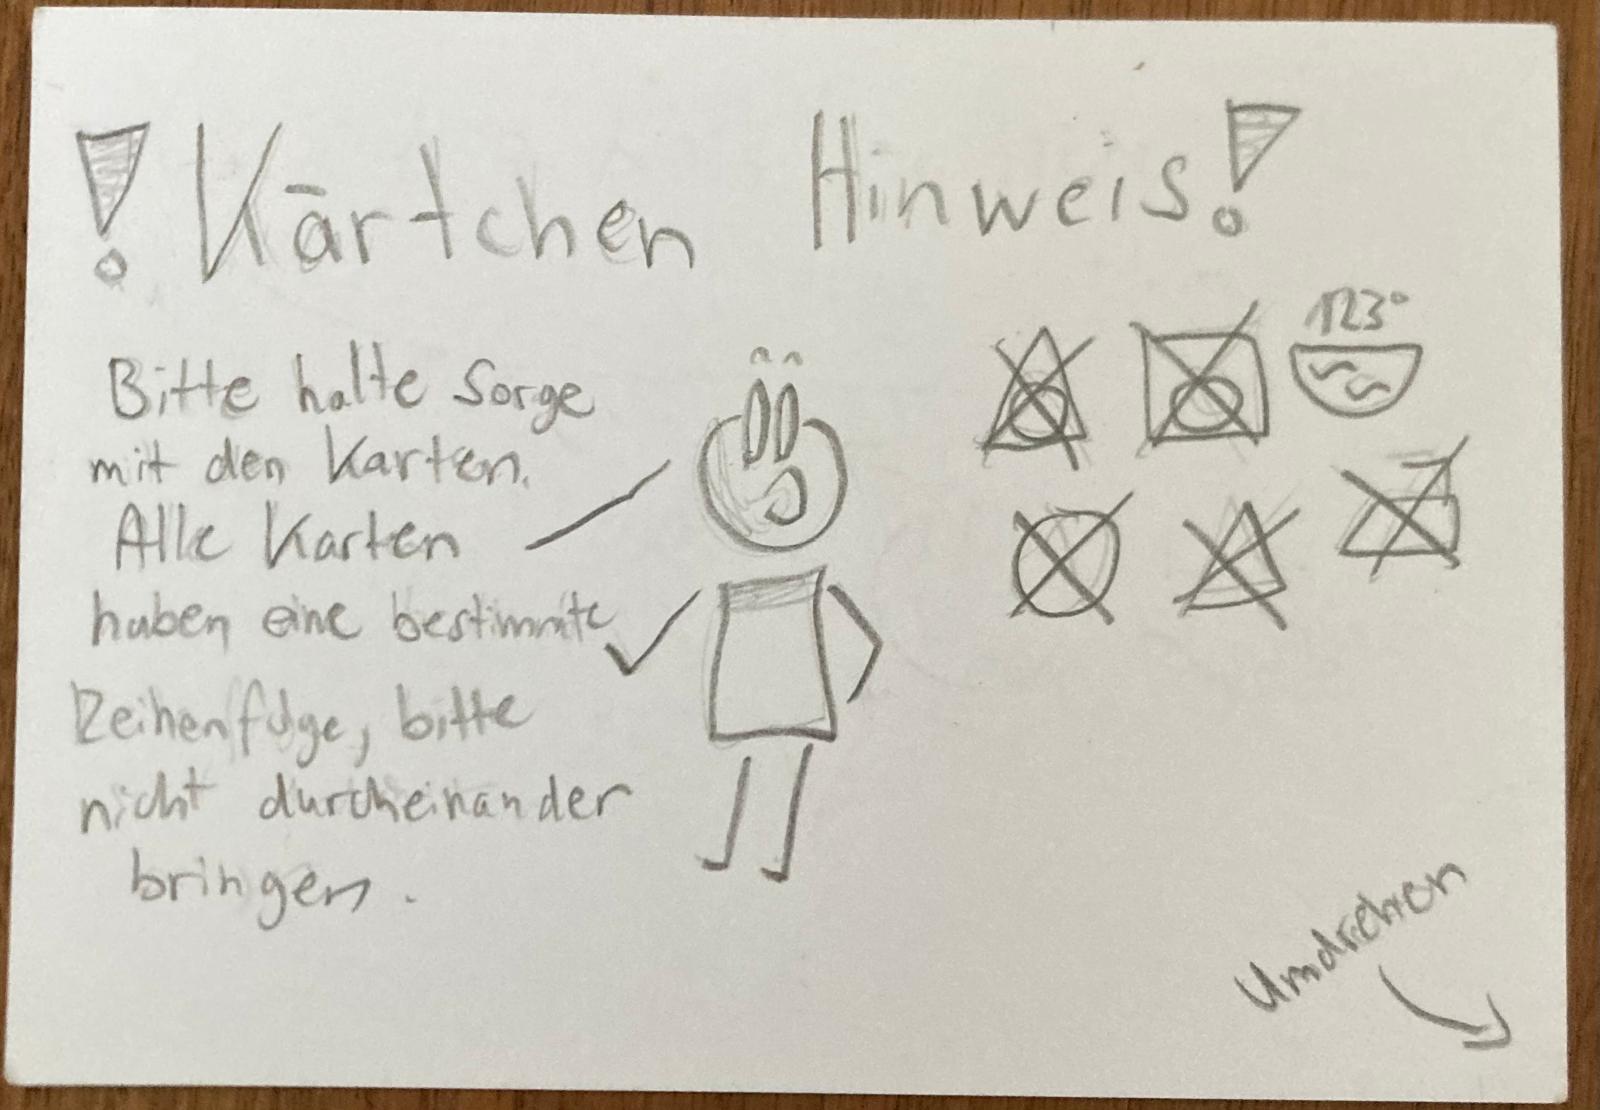 ! Kärtchen Hinweis!
Bitte halte Sorge
mit den Karten.
Alle Karten
haben eine bestimmte
Reihenfolge, bitte
nicht durcheinander
bringen.
123°
Umdrehen